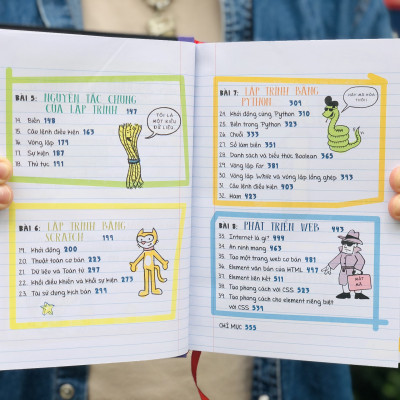 BÀI 5: NGUYÊN TẮC CHUNG
CỦA LẬP TRÌNH 147
14. Biến 148
15. Câu lệnh điều kiện 163
16. Vòng lặp 179
17. Sự kiện 187
18. Thủ tục 191
TÔI LÀ
MỘT KIỂU
DỮ LIỆU
BÀI 6: LẬP TRÌNH BẰNG
SCRATCH 199
19. Khởi động 200
20. Thuật toán cơ bản 223
21. Dữ liệu và Toán tử 247
22. Khối điều khiển và khối sự kiện 273
23. Tái sử dụng kịch bản 299
BÀI 7: LẬP TRÌNH BẰNG
PYTHON 309
24. Khởi động cùng Python 310
25. Biến trong Python 323
26. Chuỗi 333
27. Số làm biến 351
28. Danh sách và biểu thức Boolean 365
29. Vòng lặp for 381
30. Vòng lặp While và vòng lặp lồng ghép 393
31. Câu lệnh điều kiện 403
32. Hàm 423
BÀI 8: PHÁT TRIỂN WEB 443
33. Internet là gì? 444
34. An ninh mạng 463
35. Tạo một trang web cơ bản 481
36. Element văn bản của HTML 497
37. Element liên kết 511
38. Tạo phong cách với CSS 523
39. Tạo phong cách cho element riêng biệt
với CSS 539
MẬT
MÃ
CHỈ MỤC 555